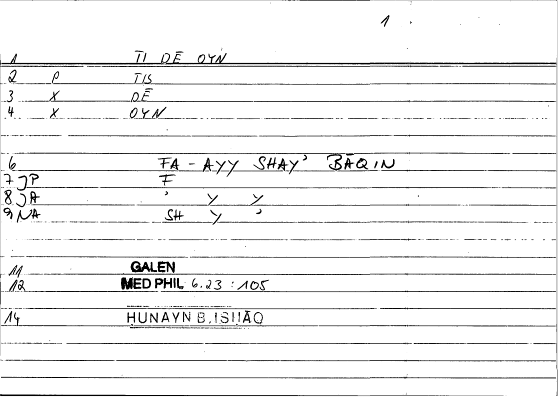 1
1 TI DĒ OYN
2 P TIS
3 X DĒ
4 X OYN
6 FA - AYY SHAY' BĀQIN
7 JP F
8 JA ' Y Y
9 NA SH Y '
11 GALEN
12 MED PHIL 6.23 : 105
14 HUNAYN B. ISHĀQ